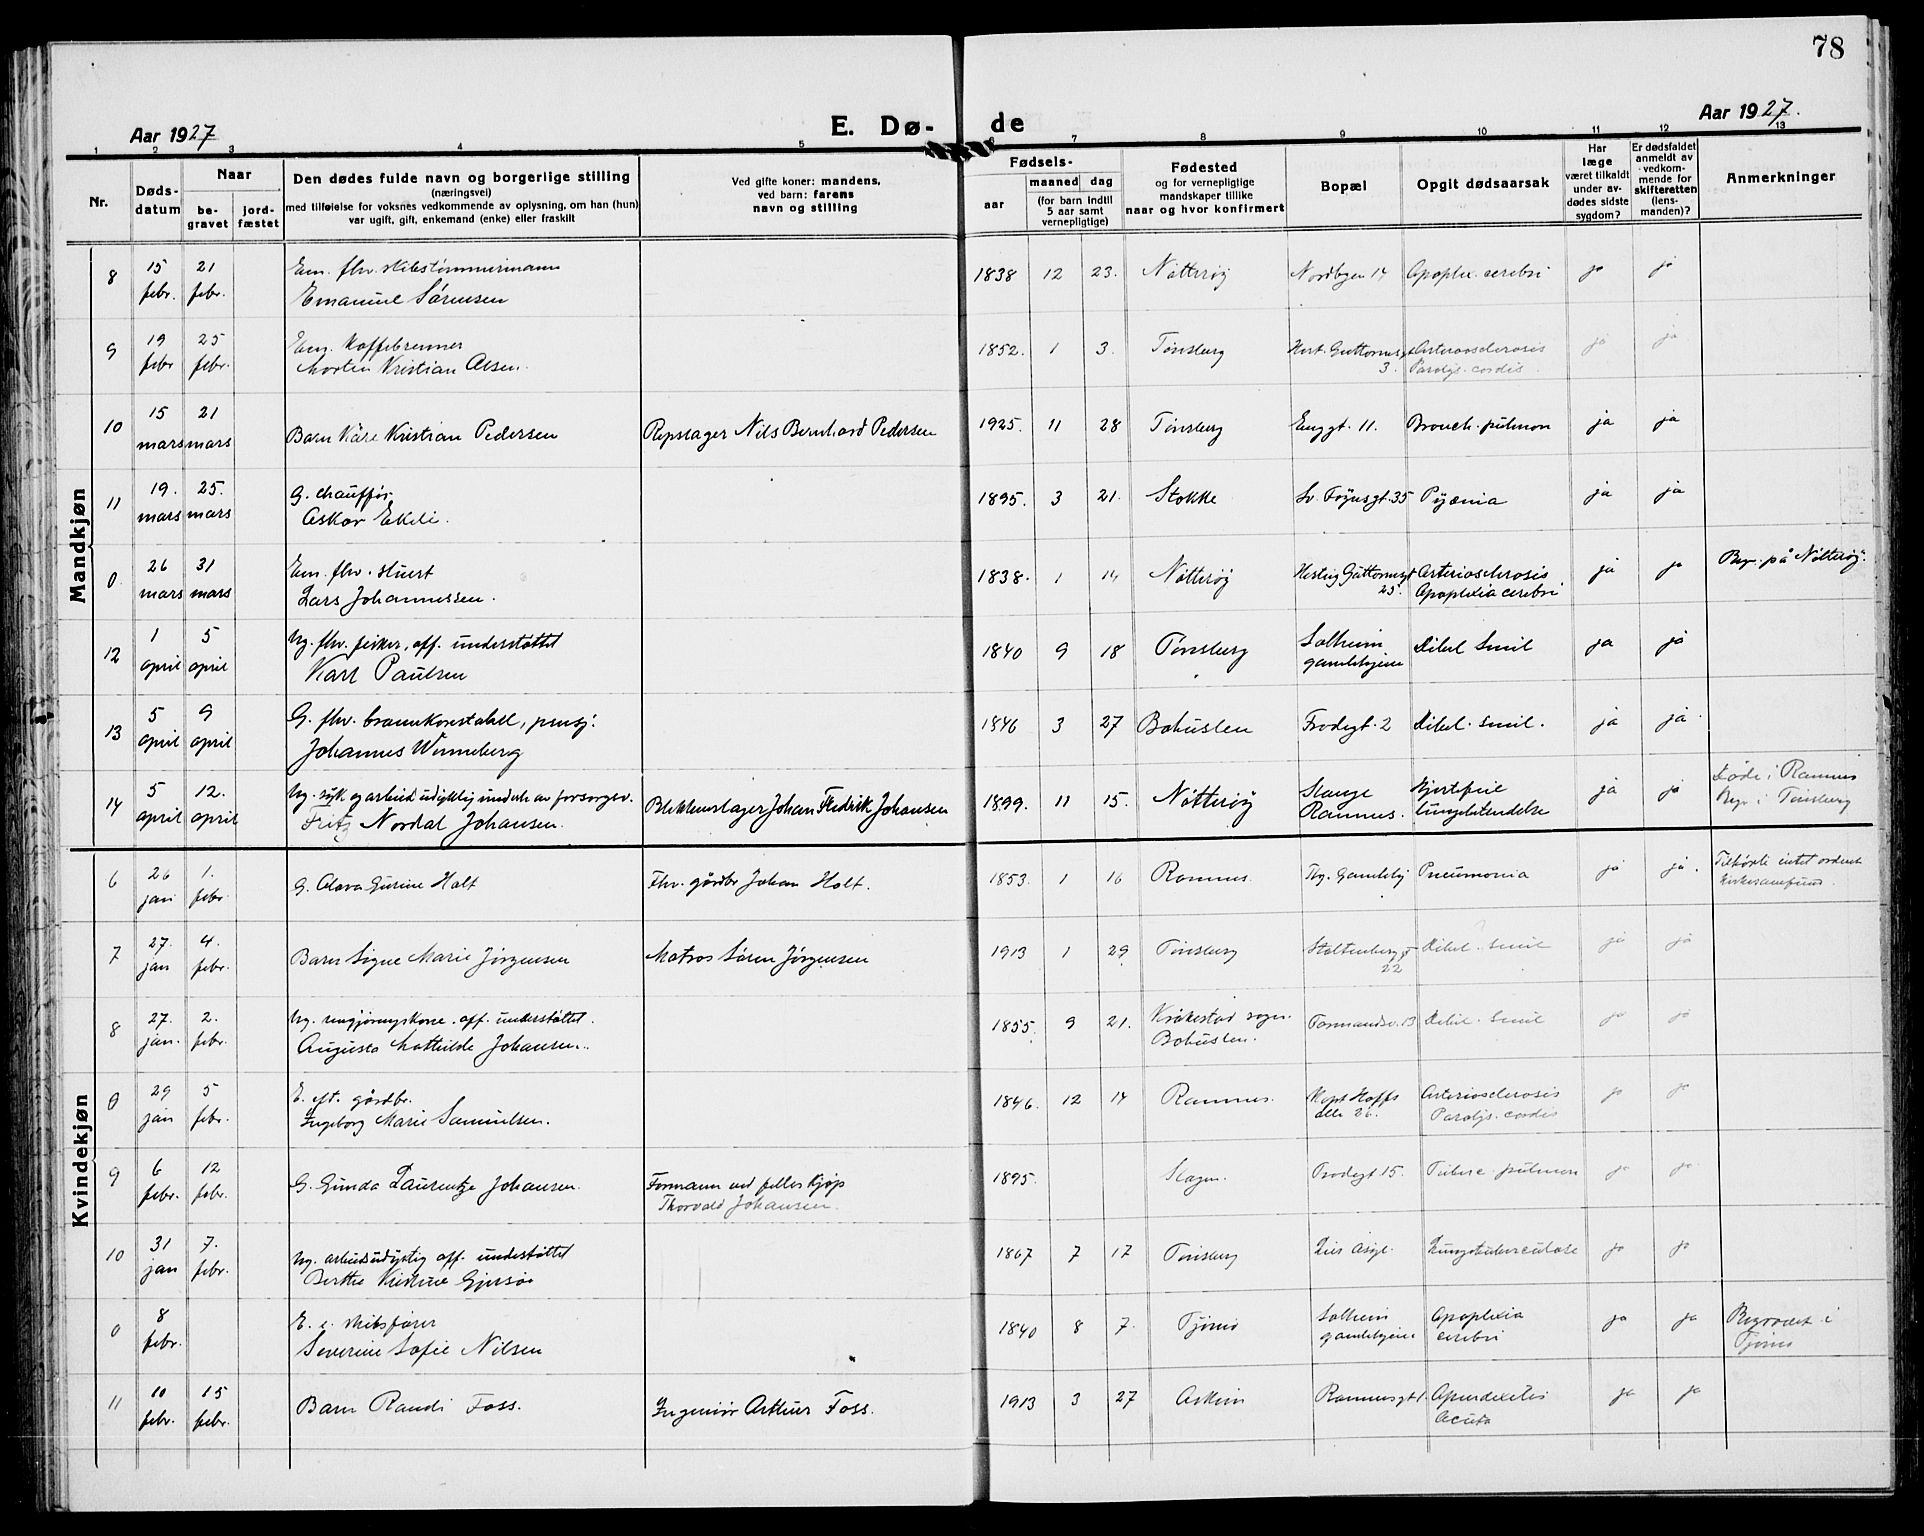 78
Aar 1927
E. Dø- de
Aar 1927.
1 2 3 4 5 6 7 8 9 10 11 12 13
Nr.
Døds-
datum
Naar
be-
gravet
jord-
fæstet
Den dødes fulde navn og borgerlige stilling
(næringsvei)
med tilføielse for voksnes vedkommende av oplysning, om han (hun)
var ugift, gift, enkemand (enke) eller fraskilt
Ved gifte koner: mandens,
ved barn: farens
navn og stilling
Fødsels-
aar
maaned dag
(for barn indtil
5 aar samt
vernepligtige)
Fødested
og for vernepligtige
mandskaper tillike
naar og hvor konfirmert
Bopæl
Opgit dødsaarsak
Har
læge
været tilkaldt
under av-
dødes sidste
sygdom?
Er dødsfaldet
anmeldt av
vedkom-
mende for
skifteretten
(lens-
manden)?
Anmerkninger
Mandkjøn
8 15 febr. 21 febr.
Em. fhv. skibstømmermann
Emanuel Sørensen
1838 12 23. Nøtterøy Nordbyen 14 Apoplex. cerebri ja ja
9 19 febr 25 febr.
Em. Kaffebrenner
Morten Kristian Olsen.
1852. 1 3. Tønsberg Hert. Guttormsgt 3. Arteriosclerosis
Paralys. cordis. ja ja
10 15 mars 21 mars
Barn Kåre Kristian Pedersen Repslager Nils Bernhard Pedersen
1925. 11 28 Tønsberg Enggt. 11. Bronch. pulmon ja ja
11 19. mars 25. mars
G. chauffør.
Oskar Ekeli.
1895. 3 21. Stokke Sv. Føyensgt. 35 Pyæmia ja ja
0 26 mars 31 mars
Em. fhv. stuert
Lars Johannessen.
1838. 1 14 Nøtterøy Hertug Guttormsgt 25. Arteriosclerosis
Apoplexia cerebri ja ja Begr. på Nøtterøy.
12 1 april 5 april
Ug. fhv. fisker, off. understøttet
Karl Paulsen
1840 9 18 Tønsberg Solheim
gamlehjem Debil. senil ja ja
13 5 april 9 april
G. fhv. brannkonstabel, pensj.
Johannes Winneberg
1846 3 27 Bohuslen Frodegt. 2 Debil. senil. ja ja
14 5 april 12. april
Ug. syk og arbeidsudyktig underh. av forsorgsv.
Fritz Nordal Johansen. Blikkenslager Johan Fredrik Johansen
1899. 11 15. Nøtterøy Stange
Ramnes. Hjertefeil
lungebetendelse ja ja Døde i Ramnes
Begr i Tønsberg
Kvindekjøn
6 26 jan 1. febr
G. Olava Gurine Holt Fhv. gårdbr Johan Holt.
1853. 1 16 Ramnes. Tbg. Gamlehj Pneumonia ja ja. Tilhørte intet ordnet
kirkesamfund.
7 27. jan 4. febr.
Barn Signe Marie Jørgensen Matros Søren Jørgensen
1913 1 29 Tønsberg Stoltenbergsgt
22 Debil. senil ja ja
8 27. jan. 2. febr.
Ug. rengjøringskone. off. understøttet.
Augusta Mathilde Johansen.
1855. 9 21. Krokestad sogn.
Bohuslen. Formandsv. 13 Debil. senil ja ja
0 29 jan 5 febr.
E. eft. gårdbr.
Ingeborg Marie Samuelsen.
1846. 12 14 Ramnes. Kapt Hoffs
alle 26. Arteriosclerosis
Paralys. cordis ja ja
9 6 febr. 12 febr.
G. Gunda Laurentze Johansen. Formann ved felleskjøp
Thorvald Johansen.
1895. Slagen. Frodegt 15. Tuberc. pulmon ja ja
10 31 jan 7. febr.
Ug. arbeidsudyktig off. understøttet
Berthe Kristine Gjersøe
1867 7 17 Tønsberg Lies Asyl. Lungetuberculose ja ja
0 8 febr.
E. e. skibsfører
Severine Sofie Nilsen
1840 8 7. Tjømø Solheim
gamlehjem Apoplexia
cerebri ja ja Begravet i
Tjømø
11 10 febr. 15 febr.
Barn Randi Foss. Ingeniør Arthur Foss.
1913 3 27 Askim Ramnesgt 1. Apendixitis
acuta ja ja